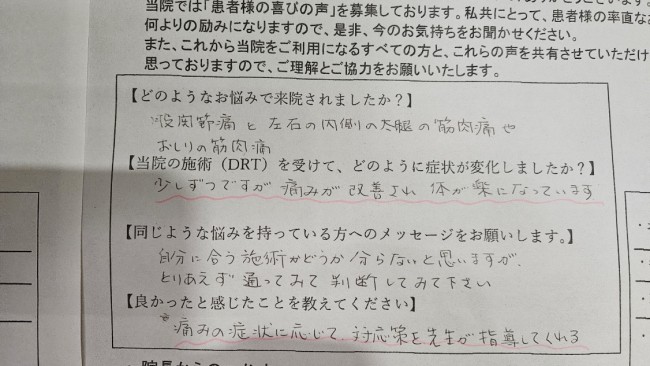 当院では「患者様の喜びの声」を募集しております。私共にとって、患者様の率直な
何よりの励みになりますので、是非、今のお気持ちをお聞かせください。
また、これから当院をご利用になるすべての方と、これらの声を共有させていただけ
思っておりますので、ご理解とご協力をお願いいたします。
【どのようなお悩みで来院されましたか？】
股関節痛と左右の内側の太腿の筋肉痛や
おしりの筋肉痛
【当院の施術（DRT）を受けて、どのように症状が変化しましたか？】
少しずつですが痛みが改善され体が楽になっています
【同じような悩みを持っている方へのメッセージをお願いします。】
自分に合う施術かどうか分らないと思いますが、
とりあえず通ってみて判断してみて下さい
【良かったと感じたことを教えてください】
痛みの症状に応じて、対応策を先生が指導してくれる